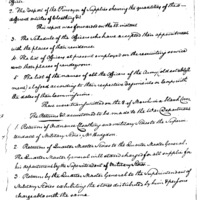 office.
2. The Report of the Purveyor of Supplies shewing the quantities of the different articles of cloathing &c
This report was furnished on the 22 instant
3. The schedule of the Officers who have accepted their appointments with the places of their residence.
4. The list of Officers at present employed on the recruiting service and their places of rendezvous
5. The list of the names of all the Officers of the Army, old establishment, aforesaid according to their respective Regiments or Corps with the dates of their Commissions
These were transmitted on the 8 of March and
The Returns to be made to the War Department
1. Return of Ordnance, Cloathing and Military Stores the Superintendent of Military Stores, Mr. Hodgdon.
2. Returns of Quarter Master Stores to the Quarter Master General. The Quarter Master General will stand charged for all supplies for his department by the Superintendent of Military Stores
3. Returns by the Quarter Master General to the Superintendent of Military Stores exhibiting the stores distributed by him & persons chargeable with the same.